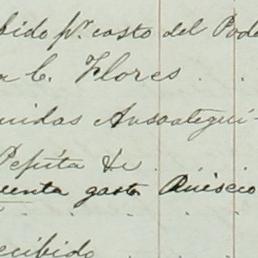 bido pr. costo del Pode
a C. Flores
uidas Ansoategui
Pepita &
uenta gasto Quiseio
ecibido